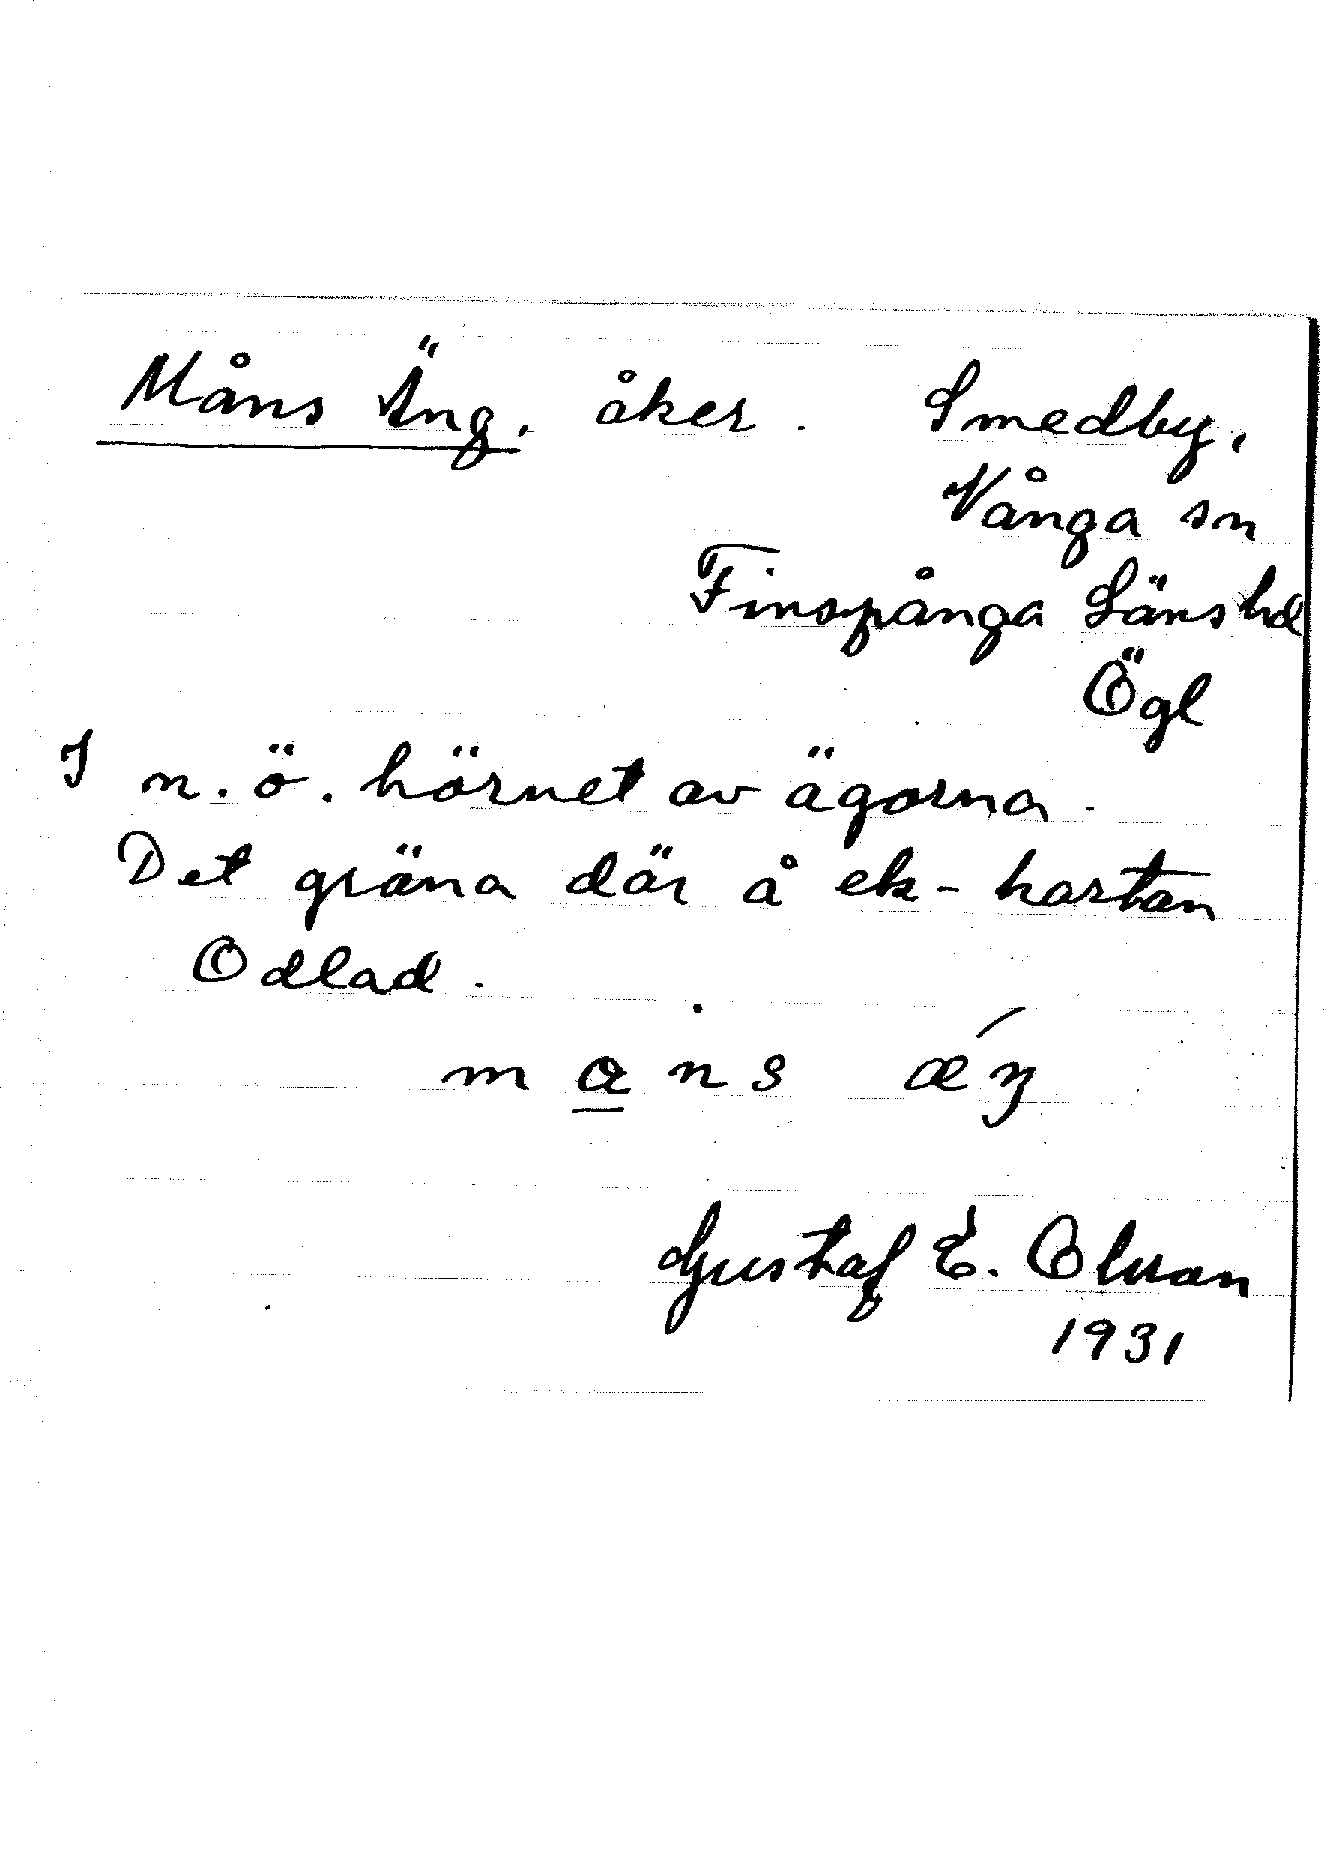 Måns Äng. åker. Smedby,
Vånga sn
Finspånga Läns hd
Ögl
I n.ö. hörnet av ägorna.
Det gräna där å ek-hartan
Odlad.
mans æŋ
Gustaf E. Olsson
1931